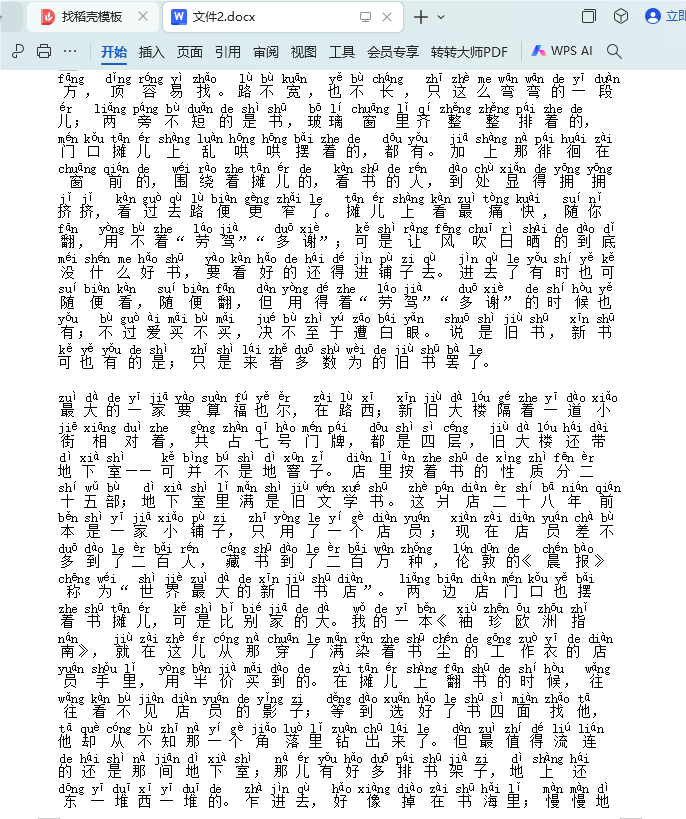 找稻壳模板
文件2.docx
立即
开始 插入 页面 引用 审阅 视图 工具 会员专享 转转大师PDF WPS AI
fāng dǐng róng yì zhǎo lù bù kuān yě bù cháng zhǐ zhè me wān wān de yī duàn
方，顶容易找。路不宽，也不长，只这么弯弯的一段
ér liǎng páng bù duǎn de shì shū bō lí chuāng lǐ qí zhěng zhěng pái zhe de
儿；两旁不短的是书，玻璃窗里齐整整排着的，
mén kǒu tān ér shàng luàn hōng hōng bǎi zhe de dōu yǒu jiā shàng nà pái huái zài
门口摊儿上乱哄哄摆着的，都有。加上那徘徊在
chuāng qián de wéi rào zhe tān ér de kàn shū de rén dào chù xiǎn de yōng yōng
窗前的，围绕着摊儿的，看书的人，到处显得拥拥
jǐ jǐ kàn guò qù lù biàn gèng zhǎi le tān ér shàng kàn zuì tòng kuài suí nǐ
挤挤，看过去路便更窄了。摊儿上看最痛快，随你
fān yòng bù zhe láo jià duō xiè kě shì ràng fēng chuī rì shài de dào dǐ
翻，用不着“劳驾”“多谢”；可是让风吹日晒的到底
méi shén me hǎo shū yào kàn hǎo de hái dé jìn pù zi qù jìn qù le yǒu shí yě kě
没什么好书，要看好的还得进铺子去。进去了有时也可
suí biàn kàn suí biàn fān dàn yòng dé zhe láo jià duō xiè de shí hòu yě
随便看，随便翻，但用得着“劳驾”“多谢”的时候也
yǒu bù guò ài mǎi bù mǎi jué bù zhì yú zāo bái yǎn shuō shì jiù shū xīn shū
有；不过爱买不买，决不至于遭白眼。说是旧书，新书
kě yě yǒu de shì zhǐ shì lái zhě duō shù wèi de jiù shū bà le
可也有的是；只是来者多数为的旧书罢了。
zuì dà de yī jiā yào suàn fú yě ěr zài lù xī xīn jiù dà lóu gé zhe yī dào xiǎo
最大的一家要算福也尔，在路西；新旧大楼隔着一道小
jiē xiāng duì zhe gòng zhàn qī hào mén pái dōu shì sì céng jiù dà lóu hái dài
街相对着，共占七号门牌，都是四层，旧大楼还带
dì xià shì kě bìng bú shì dì xūn zǐ diàn lǐ àn zhe shū de xìng zhì fēn èr
地下室——可并不是地窨子。店里按着书的性质分二
shí wǔ bù dì xià shì lǐ mǎn shì jiù wén xué shū zhè pán diàn èr shí bā nián qián
十五部；地下室里满是旧文学书。这爿店二十八年前
běn shì yī jiā xiǎo pù zi zhǐ yòng le yí gè diàn yuán xiàn zài diàn yuán chà bù
本是一家小铺子，只用了一个店员；现在店员差不
duō dào le èr bǎi rén cáng shū dào le èr bǎi wàn zhǒng lún dūn de chén bào
多到了二百人，藏书到了二百万种，伦敦的《晨报》
chēng wéi shì jiè zuì dà de xīn jiù shū diàn liǎng biān diàn mén kǒu yě bǎi
称为“世界最大的新旧书店”。两边店门口也摆
zhe shū tān ér kě shì bǐ bié jiā de dà wǒ de yī běn xiù zhēn ōu zhōu zhǐ
着书摊儿，可是比别家的大。我的一本《袖珍欧洲指
nán jiù zài zhè ér cóng nà chuān le mǎn rǎn zhe shū chén de gōng zuò yī de diàn
南》，就在这儿从那穿了满染着书尘的工作衣的店
yuán shǒu lǐ yòng bàn jià mǎi dào de zài tān ér shàng fān shū de shí hòu wǎng
员手里，用半价买到的。在摊儿上翻书的时候，往
wǎng kàn bù jiàn diàn yuán de yǐng zi děng dào xuǎn hǎo le shū sì miàn zhǎo tā
往看不见店员的影子；等到选好了书四面找他，
tā què cóng bù zhī nà yí gè jiǎo luò lǐ zuān chū lái le dàn zuì zhí dé liú lián
他却从不知那一个角落里钻出来了。但最值得流连
de hái shì nà jiān dì xià shì nà ér yǒu hǎo duō pái shū jià zi dì shàng hái
的还是那间地下室；那儿有好多排书架子，地上还
dōng yī duī xī yī duī de zhà jìn qù hǎo xiàng diào zài shū hǎi lǐ màn màn dì
东一堆西一堆的。乍进去，好像掉在书海里；慢慢地